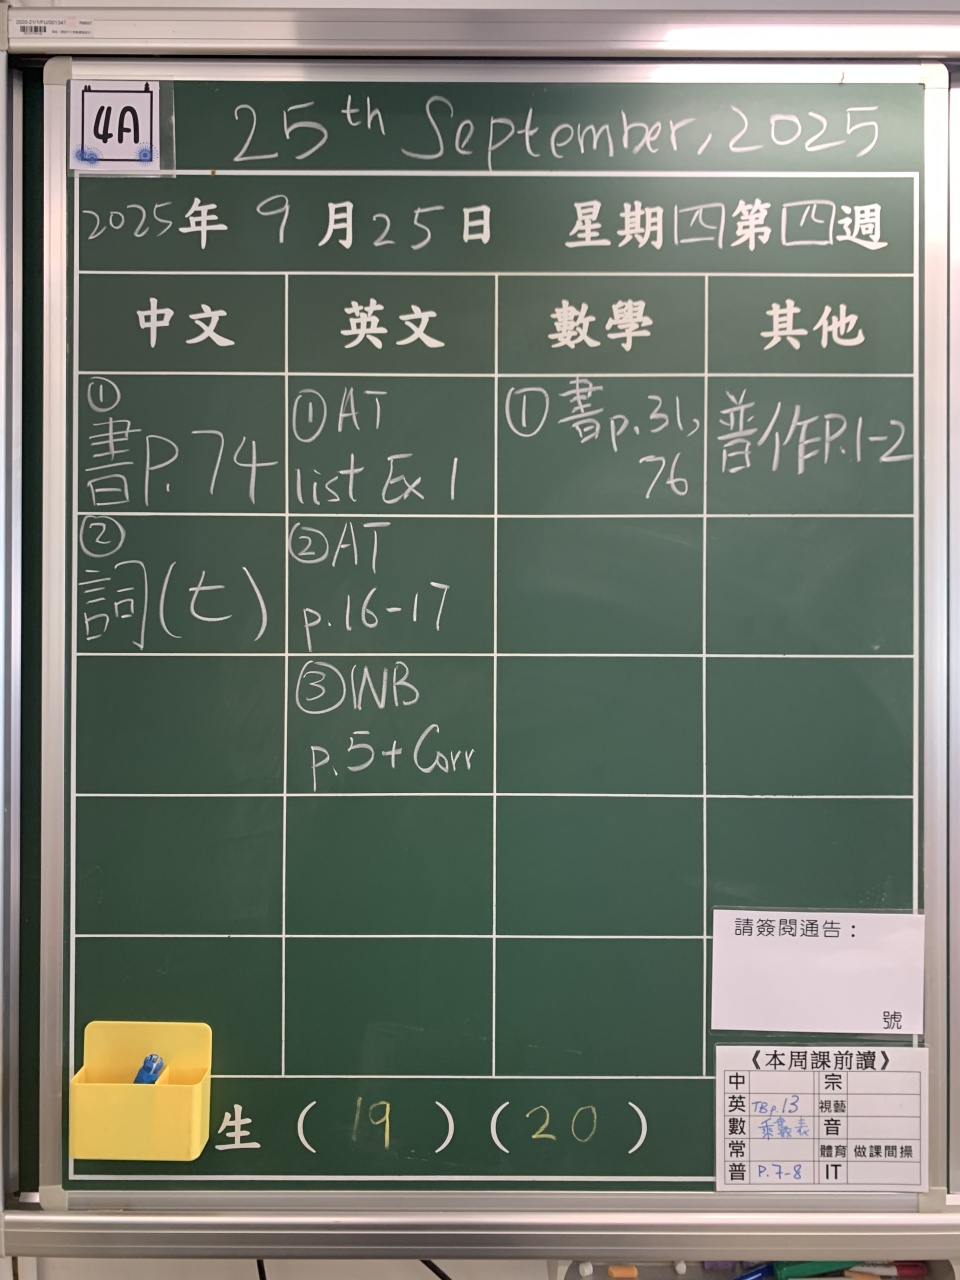 4A
25th September, 2025
2025年 9月25日 星期四第四週
中文 英文 數學 其他
①
書P.74
②
詞(七)
①AT
list Ex 1
②AT
p.16-17
③WB
p.5+Corr
①書p.31,
76
普作P.1-2
請簽閱通告：
號
《本周課前讀》
中 宗
英 TBp.13 視藝
數 乘數表 音
常 體育 做課間操
普 P.7-8 IT
生 (19) (20)